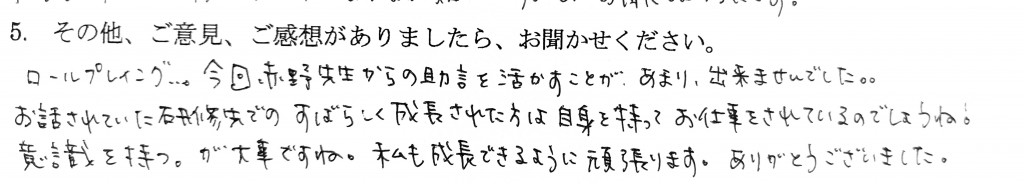 5. その他、ご意見、ご感想がありましたら、お聞かせください。
ロールプレイング…。今回、赤野先生からの助言を活かすことが、あまり、出来ませんでした。。
お話されていた研修先でのすばらしく成長された方は自身を持ってお仕事をされているのでしょうね!
意識を持つ。が大事ですね。私も成長できるように頑張ります。ありがとうございました。